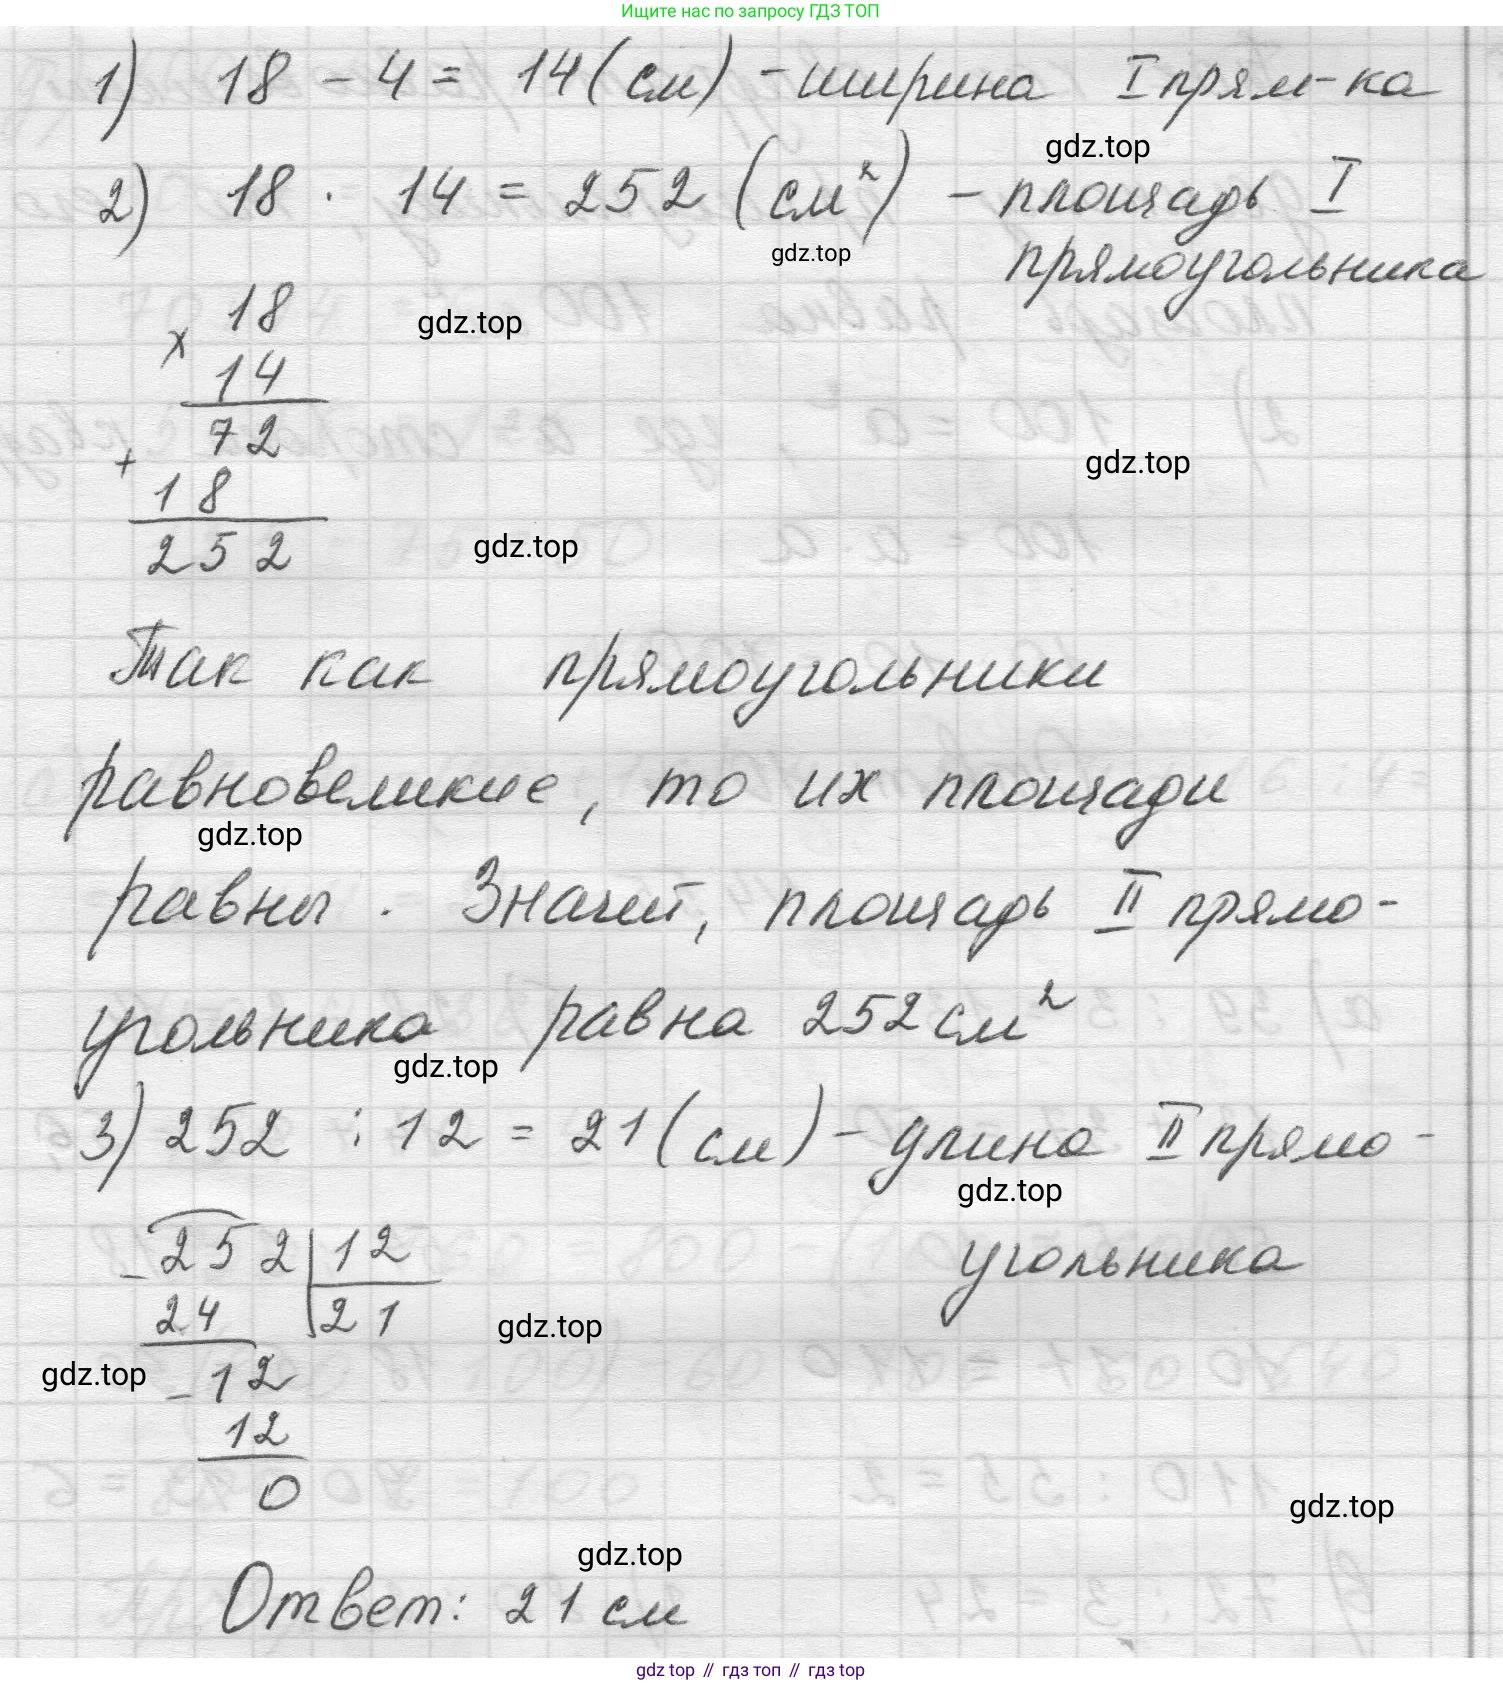 Ищите нас по запросу ГДЗ ТОП
1) 18 - 4 = 14 (см) - ширина I прям-ка
gdz.top
2) 18 · 14 = 252 (см²) - площадь I
gdz.top
прямоугольника
18
gdz.top
×
14
72
+
gdz.top
18
252
gdz.top
Так как прямоугольники
равновеликие, то их площади
gdz.top
равны. Значит, площадь II прямо-
угольника равна 252 см²
gdz.top
3) 252 : 12 = 21 (см) - длина II прямо-
gdz.top
угольника
- 252 | 12
24 21
gdz.top
gdz.top
- 12
12
0
gdz.top
gdz.top
Ответ: 21 см
gdz top // гдз топ // гдз top